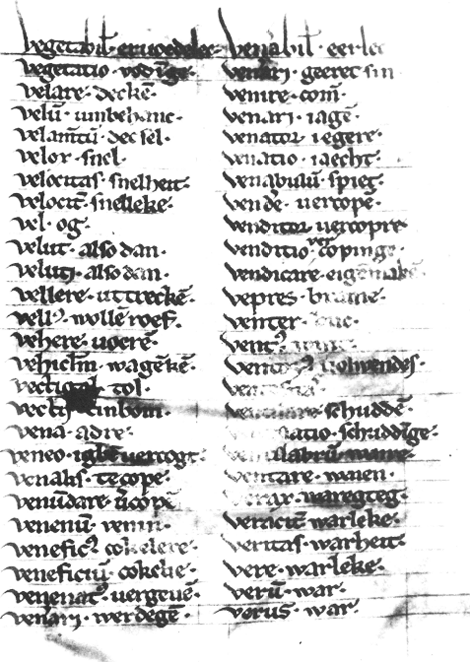 vegetabil̄· eruoedelec·
vegetatio· vodīge·
velare· deckē·
velū· umbehanc·
velamītū· decsel·
velor· snel·
velocitas· snelheit·
velocit̄· snelleke·
vel· og·
velut· also dan·
veluti· also dan·
vellere· uttreckē·
vellꝰ· wolle roef·
vehere· uoerē·
vehiclm̄· wagēkē·
vectigal· tol·
vectis· 
vena· adre·
veneo· uercogt·
venalis· te cope·
venūdare·
venenū· venin·
veneficꝰ· cokelere·
veneficiū· cokelie·
venenatꝰ· uergeuē·
venari· werdegē·
venabil̄· eerlec
venari· geeret sin
venire· com̄·
venari· iagē·
venator· iegere·
venatio· iaecht·
venabulū· spieg·
venđe· uercopē·
venditor· uercopre·
venditio· vercopinge·
vendicare· eigēmakē·
vepres· brame·
venter· buc·
ventꝰ· wint·
uolwendes·

schuddē·
schruddīge·

ventare· waien·
waregteg·
veracit̄· warleke·
veritas· warheit·
vere· warleke·
verū· war·
verus· war·